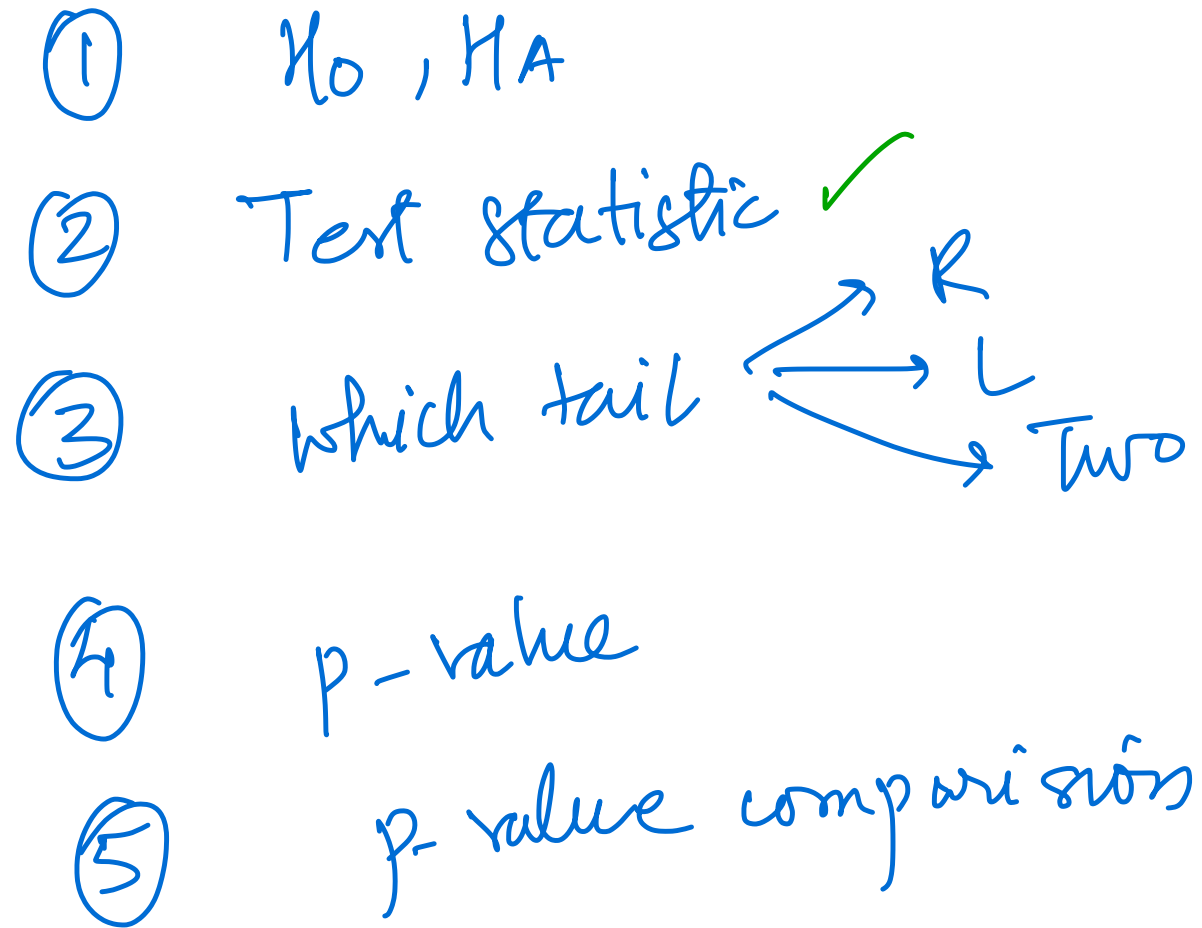 1 H0, HA
2 Test statistic ✓
R
3 which tail → L
Two
4 p-value
5 p-value comparision